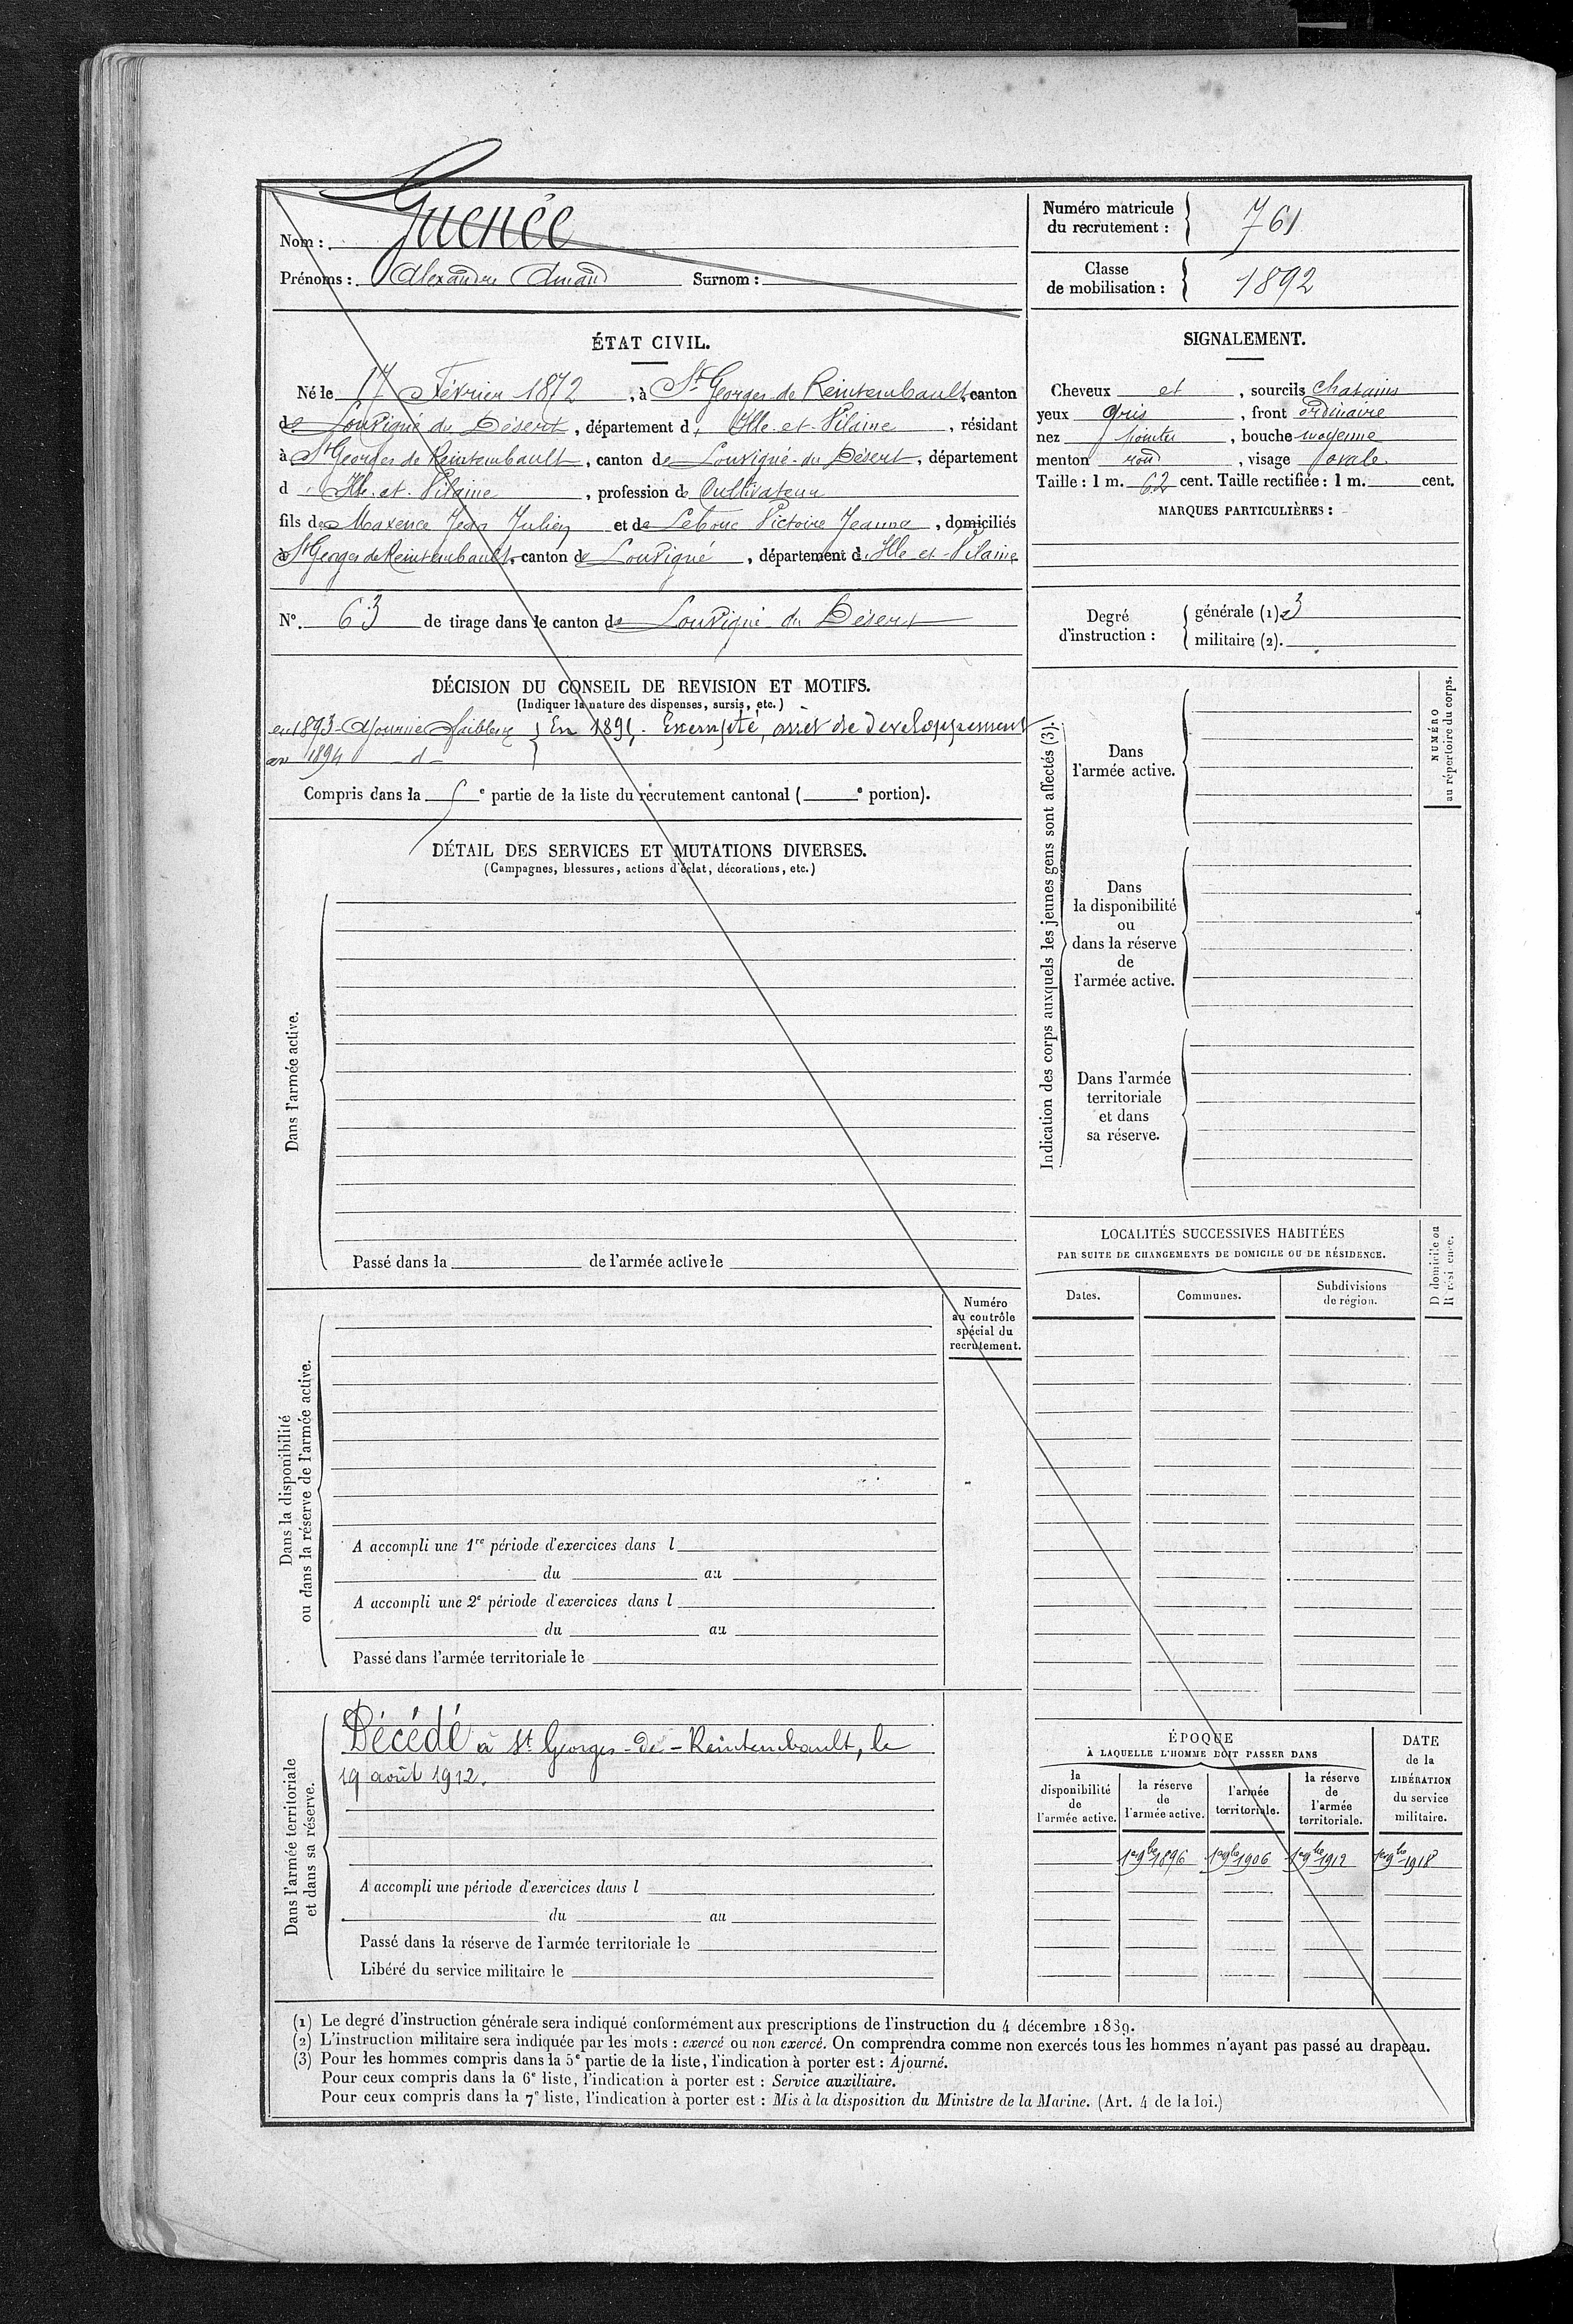 Nom : Guenée
Prénoms : Alexandre Amand Surnom :
Numéro matricule
du recrutement : 761
Classe
de mobilisation : 1892
ÉTAT CIVIL.
Né le 17 Février 1872, à St Georges de Reintembault, canton
de Louvigné du Désert, département d'Ille-et-Vilaine, résidant
à St Georges de Reintembault, canton de Louvigné-du Désert, département
d'Ille-et-Vilaine, profession de Cultivateur
fils de Maxence Jean Julien et de Lebouc Victoire Jeanne, domiciliés
à St Georges de Reintembault, canton de Louvigné, département d'Ille et-Vilaine
N° 63 de tirage dans le canton de Louvigné du Désert
DÉCISION DU CONSEIL DE REVISION ET MOTIFS.
(Indiquer la nature des dispenses, sursis, etc.)
en 1893 Ajourné faiblesse } En 1895. Exempté, arrêt de développement
en 1894 - d -
Compris dans la e partie de la liste du recrutement cantonal ( e portion).
DÉTAIL DES SERVICES ET MUTATIONS DIVERSES.
(Campagnes, blessures, actions d'éclat, décorations, etc.)
Dans l'armée active.
Passé dans la de l'armée active le
Numéro
au contrôle
spécial du
recrutement.
Dans la disponibilité
ou dans la réserve de l'armée active.
A accompli une 1re période d'exercices dans l
du au
A accompli une 2e période d'exercices dans l
du au
Passé dans l'armée territoriale le
Dans l'armée territoriale
et dans sa réserve.
Décédé à St Georges-de-Reintembault, le
19 août 1912.
A accompli une période d'exercices dans l
du au
Passé dans la réserve de l'armée territoriale le
Libéré du service militaire le
SIGNALEMENT.
Cheveux et, sourcils chatains
yeux gris, front ordinaire
nez pointu, bouche moyenne
menton rond, visage ovale
Taille : 1 m. 62 cent. Taille rectifiée : 1 m. cent.
MARQUES PARTICULIÈRES :
Degré
d'instruction :
générale (1) 3
militaire (2).
Indication des corps auxquels les jeunes gens sont affectés (3).
NUMÉRO
au répertoire du corps.
Dans
l'armée active.
Dans
la disponibilité
ou
dans la réserve
de
l'armée active.
Dans l'armée
territoriale
et dans
sa réserve.
LOCALITÉS SUCCESSIVES HABITÉES
PAR SUITE DE CHANGEMENTS DE DOMICILE OU DE RÉSIDENCE.
Dates. Communes. Subdivisions
de région.
D domicile ou
R résidence.
ÉPOQUE
À LAQUELLE L'HOMME DOIT PASSER DANS
la
disponibilité
de
l'armée active.
la réserve
de
l'armée active.
l'armée
territoriale.
la réserve
de
l'armée
territoriale.
DATE
de la
LIBÉRATION
du service
militaire.
1er 9bre 1896 1er 9bre 1906 1er 9bre 1912 1er 9bre 1918
(1) Le degré d'instruction générale sera indiqué conformément aux prescriptions de l'instruction du 4 décembre 1889.
(2) L'instruction militaire sera indiquée par les mots : exercé ou non exercé. On comprendra comme non exercés tous les hommes n'ayant pas passé au drapeau.
(3) Pour les hommes compris dans la 5e partie de la liste, l'indication à porter est : Ajourné.
Pour ceux compris dans la 6e liste, l'indication à porter est : Service auxiliaire.
Pour ceux compris dans la 7e liste, l'indication à porter est : Mis à la disposition du Ministre de la Marine. (Art. 4 de la loi.)